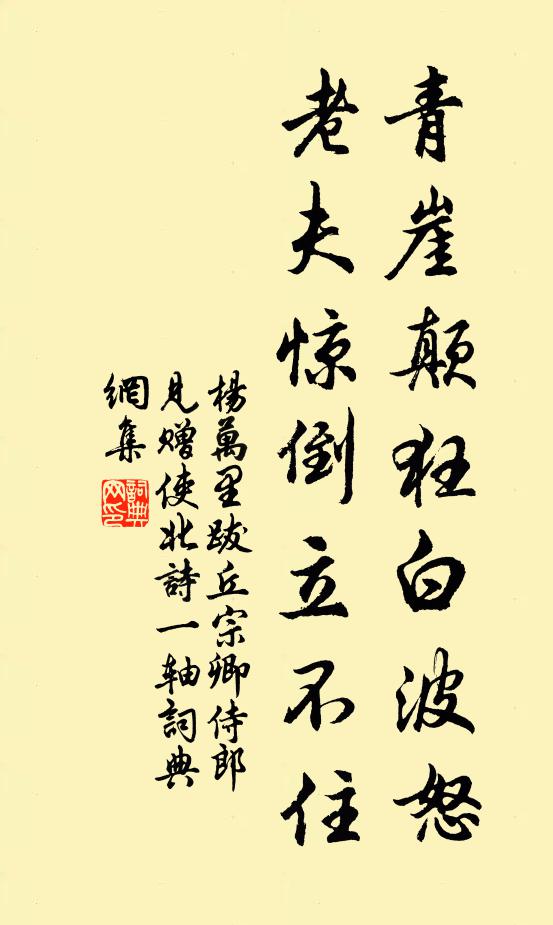 青崖颠狂白波怒
老夫惊倒立不住
楊萬里跋丘宗卿侍郎
見赠使北詩一轴詞典
網集
詞典
网印